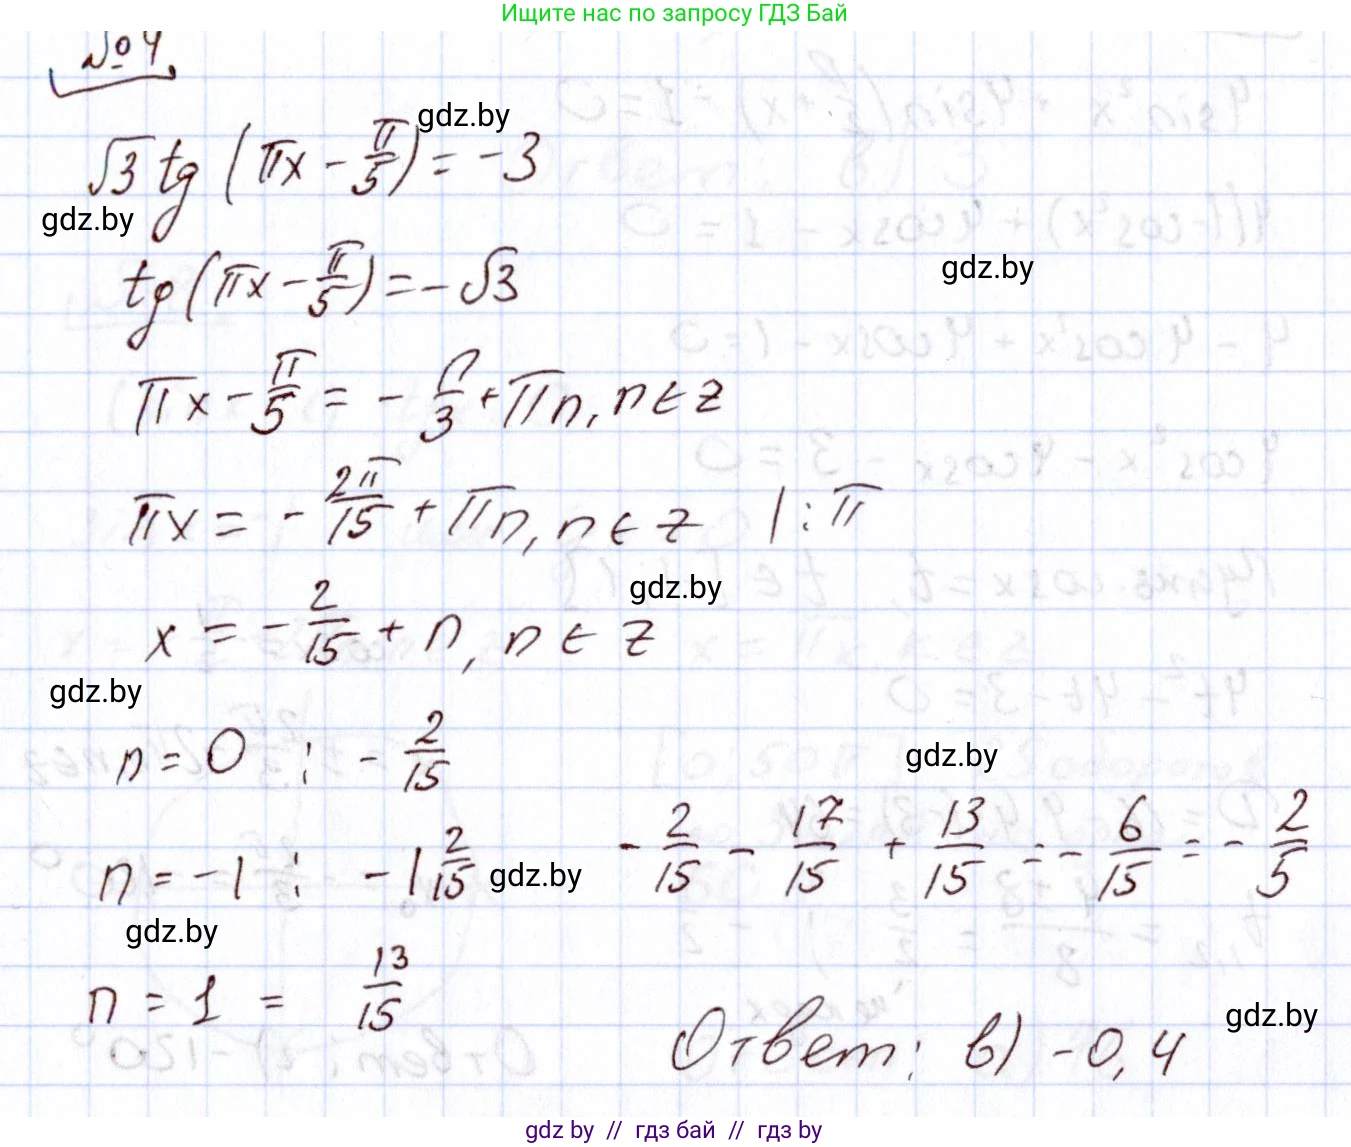 Ищите нас по запросу ГДЗ Бай
№4
gdz.by
√3 tg (πx - π/5) = -3
gdz.by
tg (πx - π/5) = -√3
gdz.by
πx - π/5 = - π/3 + πn, n ∈ z
πx = - 2π/15 + πn, n ∈ z | : π
gdz.by
x = - 2/15 + n, n ∈ z
gdz.by
n = 0 : - 2/15
gdz.by
n = -1 : -1 2/15
gdz.by
- 2/15 - 17/15 + 13/15 = - 6/15 = - 2/5
gdz.by
n = 1 = 13/15
gdz.by
Ответ: в) -0,4
gdz by // гдз бай // гдз by